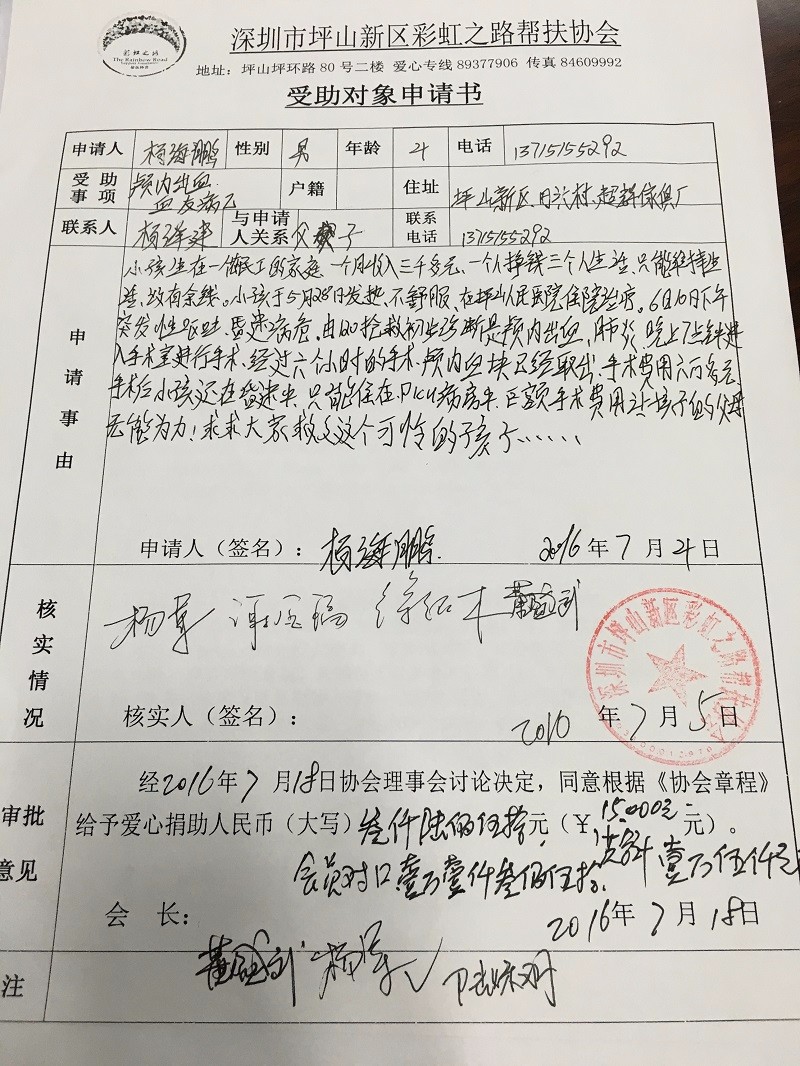 彩虹之路
The Rainbow Road
深圳市坪山新区彩虹之路帮扶协会
地址：坪山坪环路80号二楼 爱心专线89377906 传真84609992
受助对象申请书
申请人 杨海鹏 性别 男 年龄 4 电话 13715155292
受助事项 颅内出血 户籍 住址 坪山新区
联系人 与申请人关系 父子 联系电话 13715155292
申请事由
小孩生在一个农民工的家庭 一个月收入三千多元、一个人挣钱三个人生活、只能维持生
差、没有余钱。小孩于5月28日发热、不舒服、在坪山人民医院住院治疗。6日10日下午
突发性呕吐、昏迷病危、由120抢救初步诊断是颅内出血、肺炎、晚上7点钟进
入手术室进行手术、经过六个小时的手术、颅内血块已经取出、手术费用六万多元、
手术后小孩还在昏迷中、只能住在PICU病房中、巨额手术费用让孩子的父母
无能为力！求求大家救救这个可怜的孩子……
申请人（签名）：杨海鹏 2016年7月4日
核实情况
杨军
核实人（签名）： 2016年7月5日
深圳市坪山新区彩虹之路帮扶协会
审批意见
经2016年7月18日协会理事会讨论决定，同意根据《协会章程》
给予爱心捐助人民币（大写）叁仟陆佰伍拾元（￥15000元 元）。
会员对口壹万壹仟叁佰伍拾 共计壹万伍仟元
会 长： 2016年7月18日
杨军
注